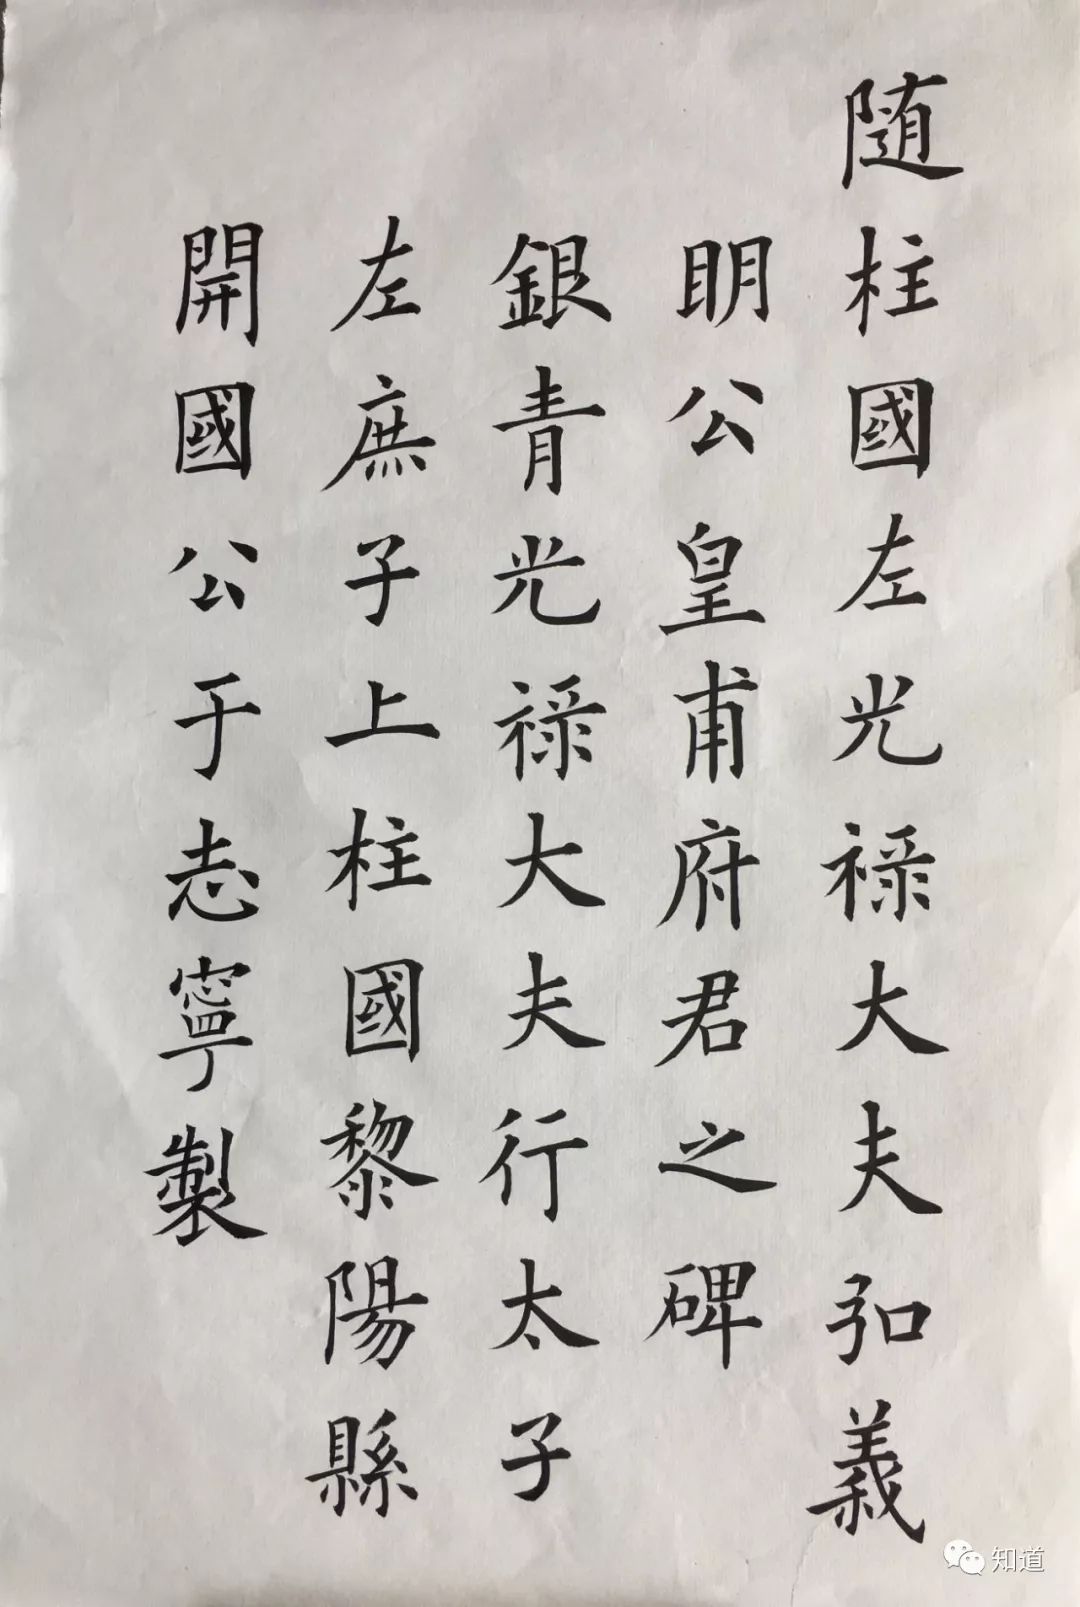 随柱國左光禄大夫弘義
明公皇甫府君之碑
銀青光禄大夫行太子
左庶子上柱國黎陽縣
開國公于志寧製
知道